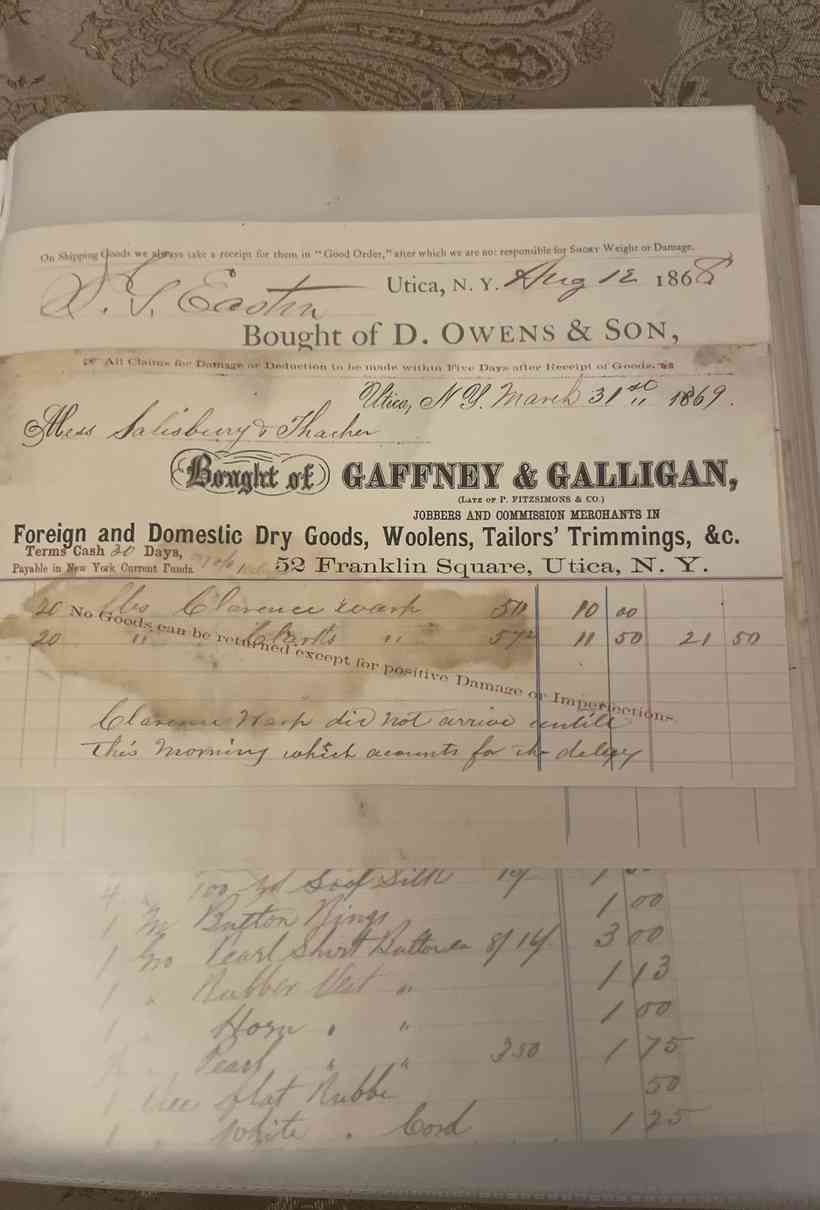 On Shipping Goods we always take a receipt for them in "Good Order," after which we are not responsible for SHORT Weight or Damage.
Utica, N. Y. Aug 12 1868
Bought of D. OWENS & SON,
All Claims for Damage or Deduction to be made within Five Days after Receipt of Goods.
Utica, N Y. March 31st 1869.
Mess Salisbury & Thacher
Bought of GAFFNEY & GALLIGAN,
(LATE OF P. FITZSIMONS & CO.)
JOBBERS AND COMMISSION MERCHANTS IN
Foreign and Domestic Dry Goods, Woolens, Tailors' Trimmings, &c.
Terms Cash 30 Days,
Payable in New York Current Funds.
52 Franklin Square, Utica, N. Y.
20 lbs Clarence warp 50 10 00
20 " " 57½ 11 50 21 50
No Goods can be returned except for positive Damage or Imperfections.
Clarence Warp did not arrive untill
This Morning which acounts for the delay
4 100 yd Silk 1
1 Button Rings 1 00
1 Pearl Shirt Buttons 8/ 14/ 3 00
1 " Rubber Vest " 1 13
1 Horn " " 1 00
Pearl " " 350 1 75
1 flat 50
1 White " Cord 1 25